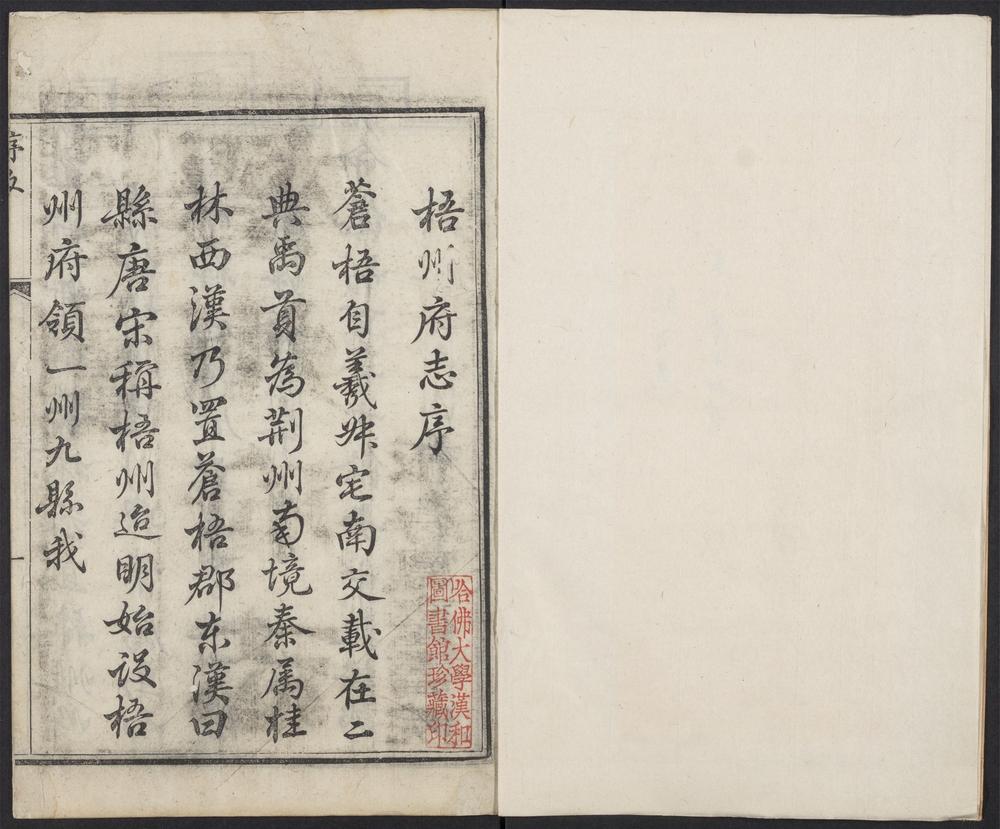 梧州府志序
蒼梧自羲叔宅南交載在二
典禹貢為荆州南境秦属桂
林西漢乃置蒼梧郡东漢曰
縣唐宋稱梧州迨明始设梧
州府領一州九縣我
哈佛大學漢和
圖書館珍藏印
序
一